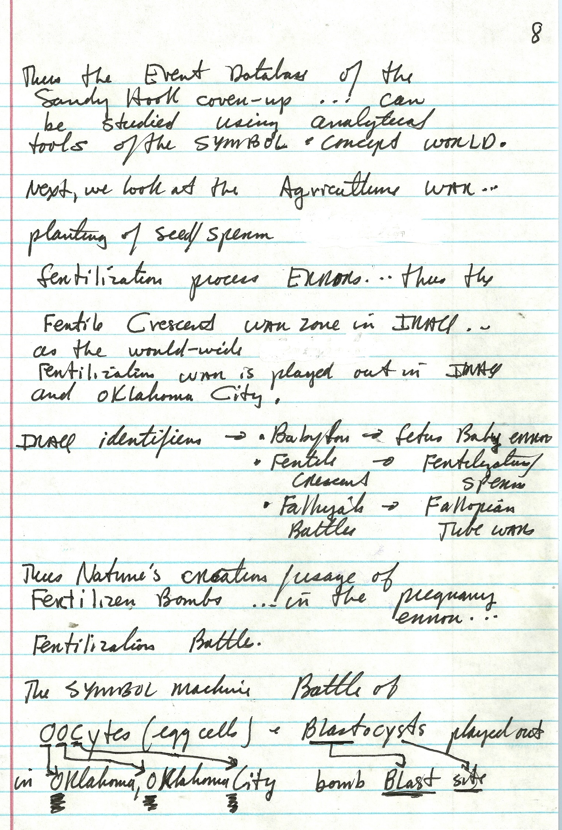 8
Thus the Event Database of the
Sandy Hook cover-up ... can
be studied using analytical
tools of the SYMBOL • Concept WORLD.
Next, we look at the Agriculture WAR...
planting of seed/sperm
fertilization process ERRORS... thus the
Fertile Crescent WAR zone in IRAQ...
as the world-wide
Fertilization WAR is played out in IRAQ
and OKlahoma City.
IRAQ identifiers → • Babylon → fetus Baby error
• Fertile → Fertilization/
Crescent sperm
• Fallujah → Fallopian
Battles Tube WARS
Thus Nature's creation/usage of
Fertilizer Bombs ... in the pregnancy
error...
Fertilization Battle.
The SYMBOL machine Battle of
OOCytes (egg cells) + Blastocysts played out
in OKlahoma, OKlahoma City bomb BLAST site